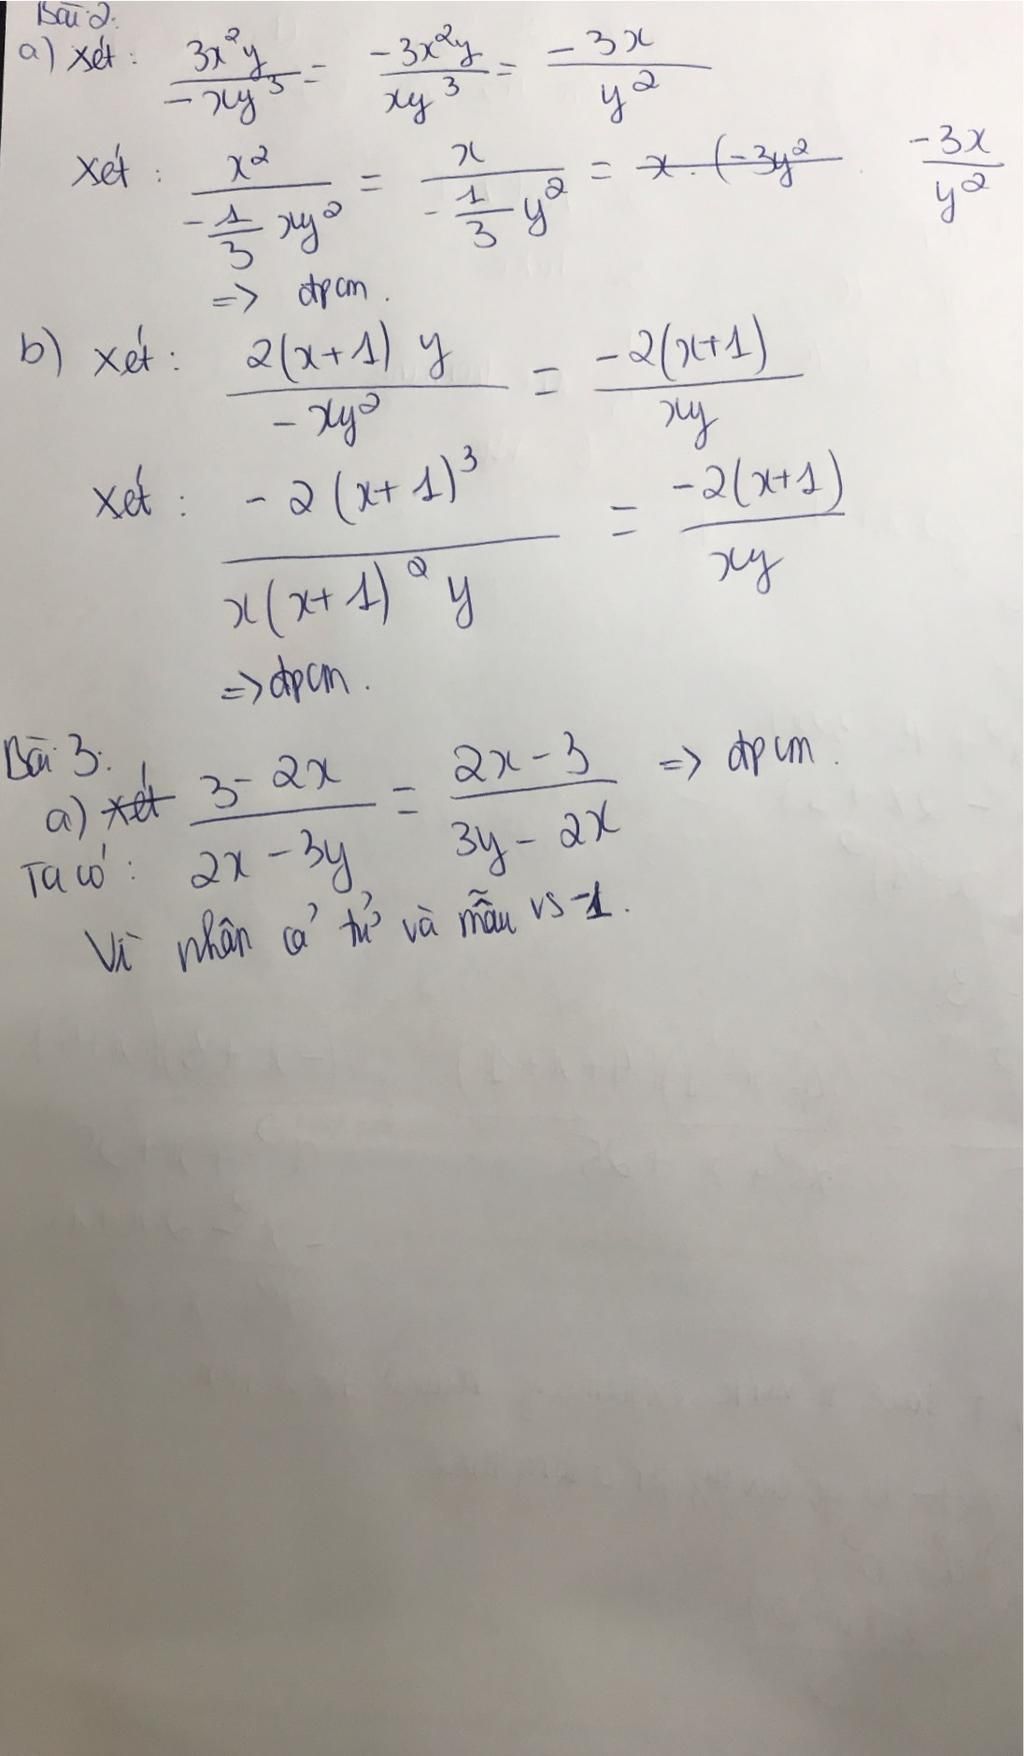 Bài 2:
a) xét: \frac{3x^2y}{-xy^3} = \frac{-3x^2y}{xy^3} = \frac{-3x}{y^2}
xét: \frac{x^2}{-\frac{1}{3}xy^2} = \frac{x}{-\frac{1}{3}y^2} = ~~x.(-3y^2~~ \frac{-3x}{y^2}
=> đpcm.
b) xét: \frac{2(x+1)y}{-xy^2} = \frac{-2(x+1)}{xy}
xét: \frac{-2(x+1)^3}{x(x+1)^2y} = \frac{-2(x+1)}{xy}
=> đpcm.
Bài 3:
a) ~~xét~~
Ta có: \frac{3-2x}{2x-3y} = \frac{2x-3}{3y-2x} => đpcm.
Vì nhân cả tử và mẫu vs -1.